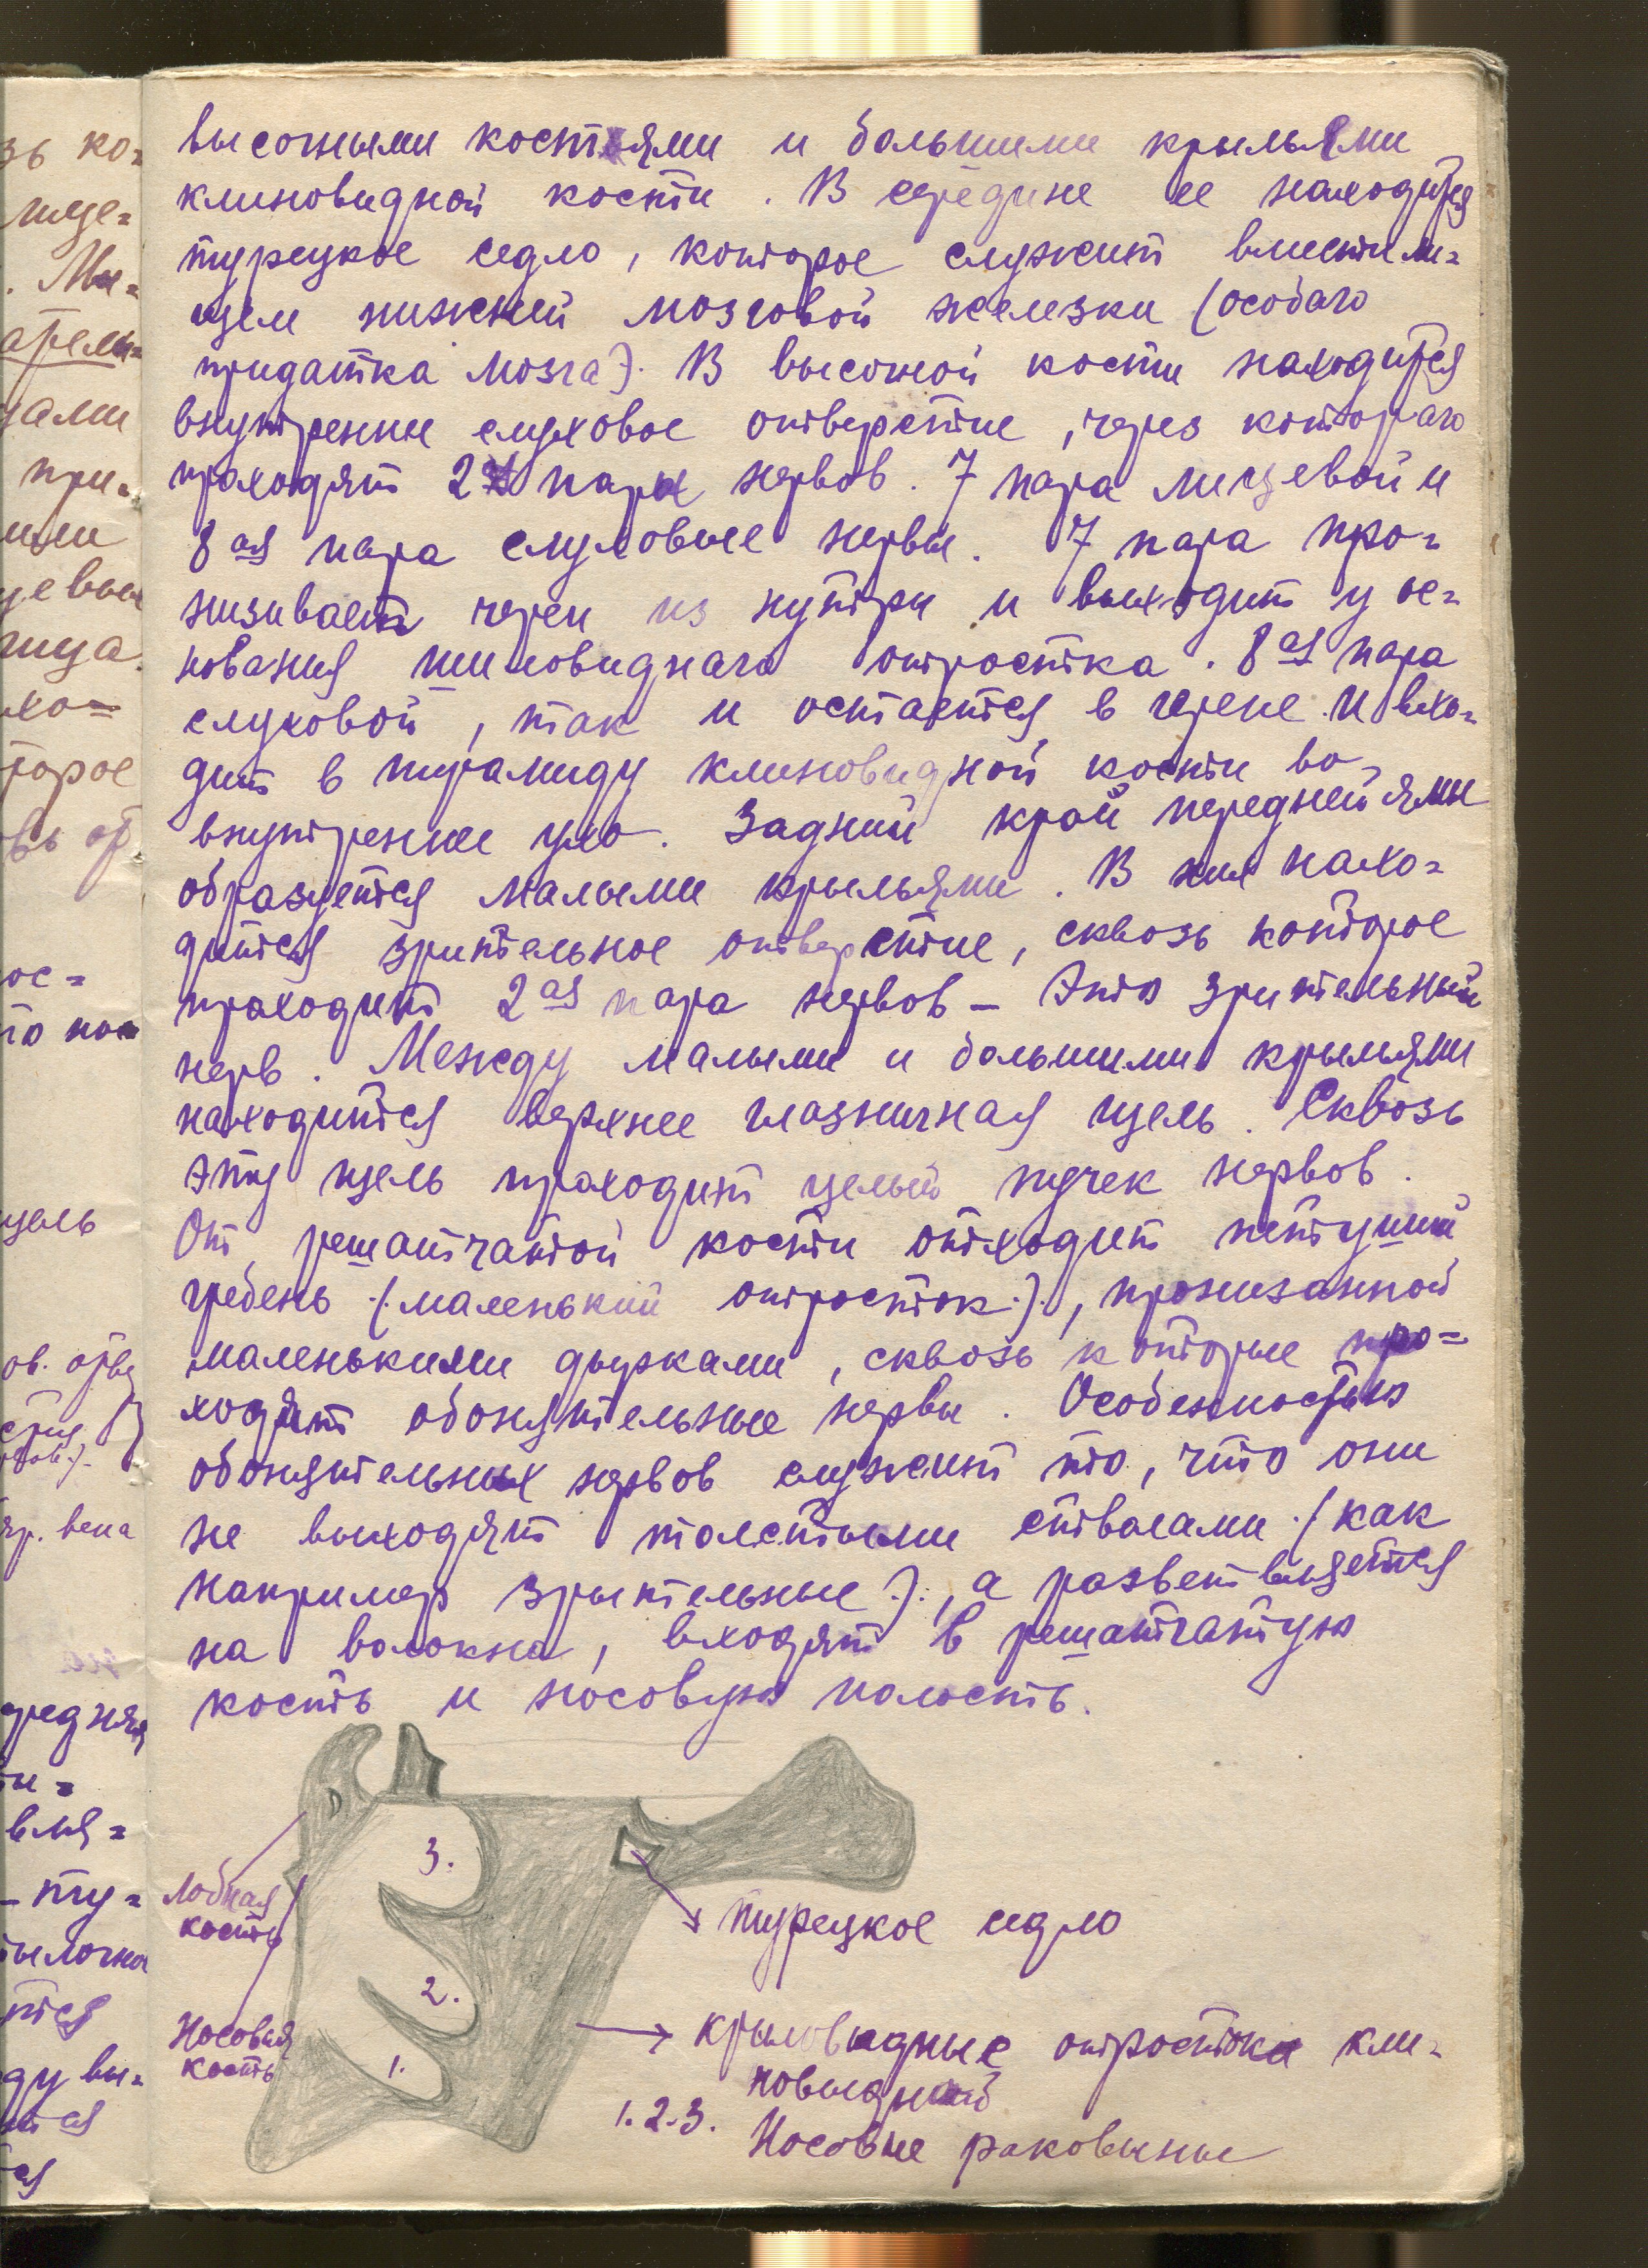 высочными костями и большими крыльями
клиновидной кости. В середине ее находится
турецкое седло, которое служит вместили=
щем нижней мозговой железки (особаго
придатка мозга). В высочной кости находится
внутренние слуховое отверстие, через котораго
проходят 2 пары нервов. 7 пара лицевой и
8ая пара слуховые нервы. 7 пара про=
низивает череп из нутри и выходит у ос=
нования шиловиднаго отростка. 8ая пара
слуховой, так и остается в черепе и вхо=
дит в пирамиду клиновидной кости во
внутренние ухо. Задний край передней ямы
образуется малыми крыльями. В них нахо=
дится зрительное отверстие, сквозь которое
проходит 2ая пара нервов — Это зрительный
нерв. Между малыми и большими крыльями
находится верхнее глазничная щель. Сквозь
эту щель проходит целый пучек нервов.
От решатчатой кости отходит петуший
гребень (маленький отросток), пронизанной
маленькими дырками, сквозь которые про=
ходят обонятельные нервы. Особенностью
обонятельных нервов служит то, что они
не выходят толстыми стволами (как
например зрительные), а разветвляется
на волокна, входят в решатчатую
кость и носовую полость.
3.
Лобная
кость
турецкое седло
2.
Носовая
кость
1.
крыловидные отростки кли=
новидной
1. 2. 3.
Носовые раковины
зь ко=
лице=
. Мы=
ями
при=
ыми
лица.
хо=
торое
ос=
щель
яр. вена
средняя
вля=
— ту=
тылочна
тся
ду вы=